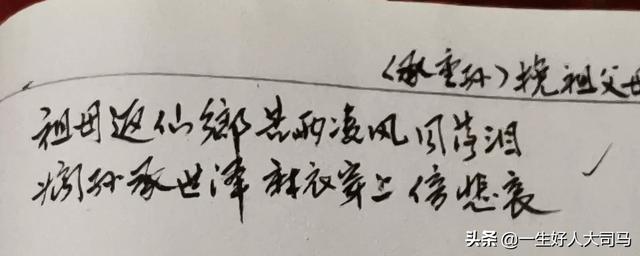 （承重孙）挽祖父母
祖母返仙鄉 苦雨凄风同落泪
孙承世泽 麻衣穿上倍悲哀
头条 @一生好人大司马